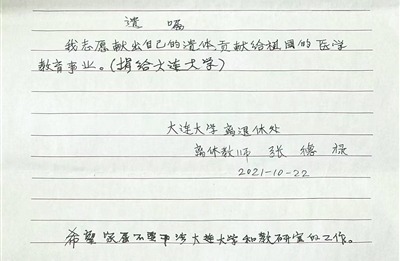 遗 嘱
我志愿献出自己的遗体贡献给祖国的医学
教育事业。(捐给大连大学)
大连大学离退休处
离休教师 张德禄
2021-10-22
希望家属不要干涉大连大学和教研室的工作。